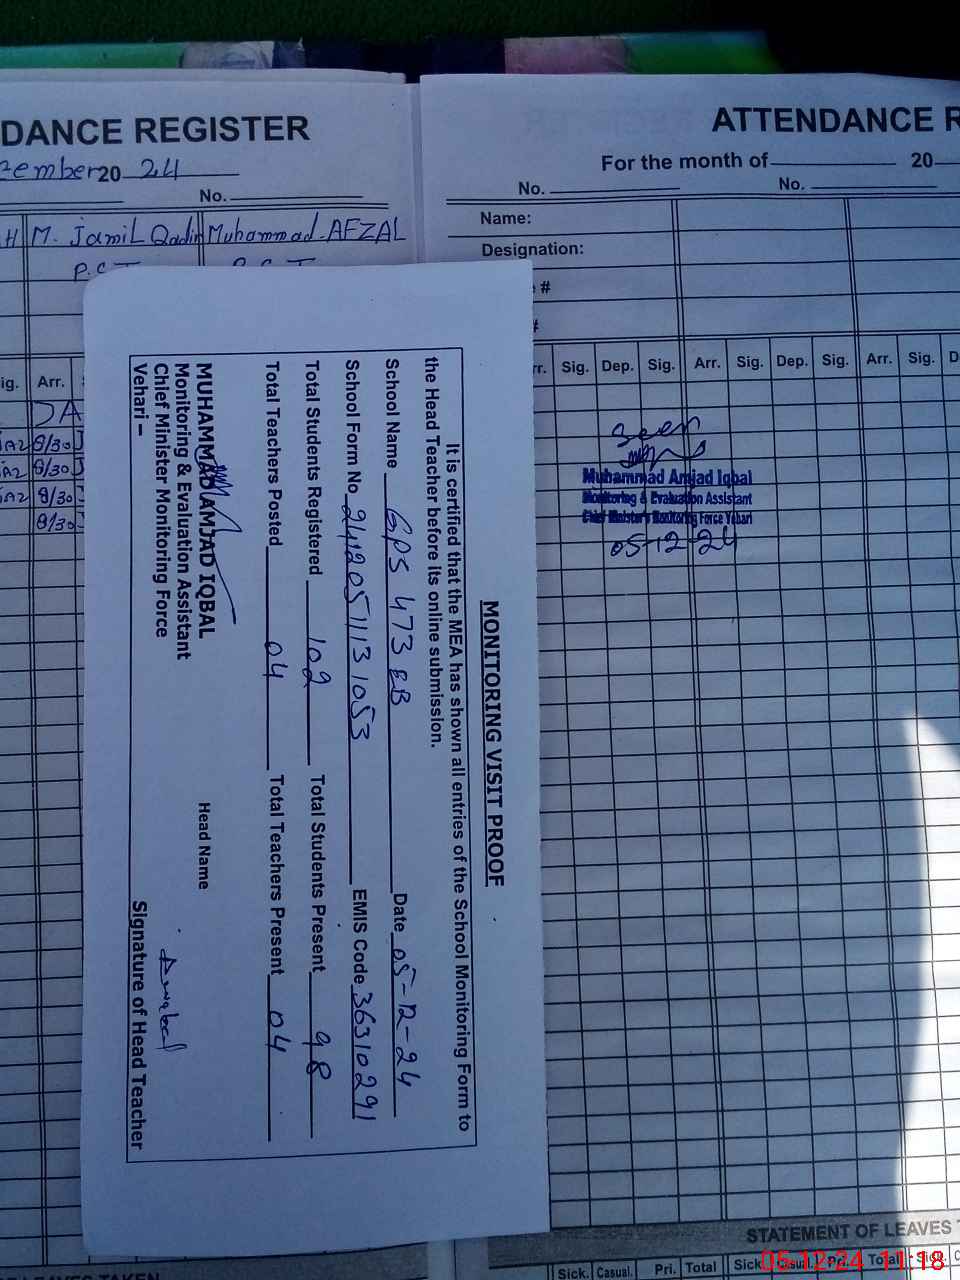 DANCE REGISTER
cember 20 24
No.
H M. Jamil Qadir Muhammad AFZAL
P.C.T P.C.T
ig. Arr.
8/30
8/30
8/30
8/30
ATTENDANCE R
For the month of 20
No. No.
Name:
Designation:
#
#
rr. Sig. Dep. Sig. Arr. Sig. Dep. Sig. Arr. Sig. D
Seen
Muhammad Amjad Iqbal
Monitoring & Evaluation Assistant
Chief Minister's Monitoring Force Vehari
05-12-24
MONITORING VISIT PROOF
It is certified that the MEA has shown all entries of the School Monitoring Form to
the Head Teacher before its online submission.
School Name GPS 473 EB Date 05-12-24
School Form No 2412051131053 EMIS Code 36310291
Total Students Registered 102 Total Students Present 98
Total Teachers Posted 04 Total Teachers Present 04
MUHAMMAD AMJAD IQBAL Head Name
Monitoring & Evaluation Assistant
Chief Minister Monitoring Force
Vehari – Signature of Head Teacher
STATEMENT OF LEAVES
Sick. Casual. Pri. Total Sick. Casual. Pri. Total Sick.
LEAVES TAKEN
05.12.24 11:18